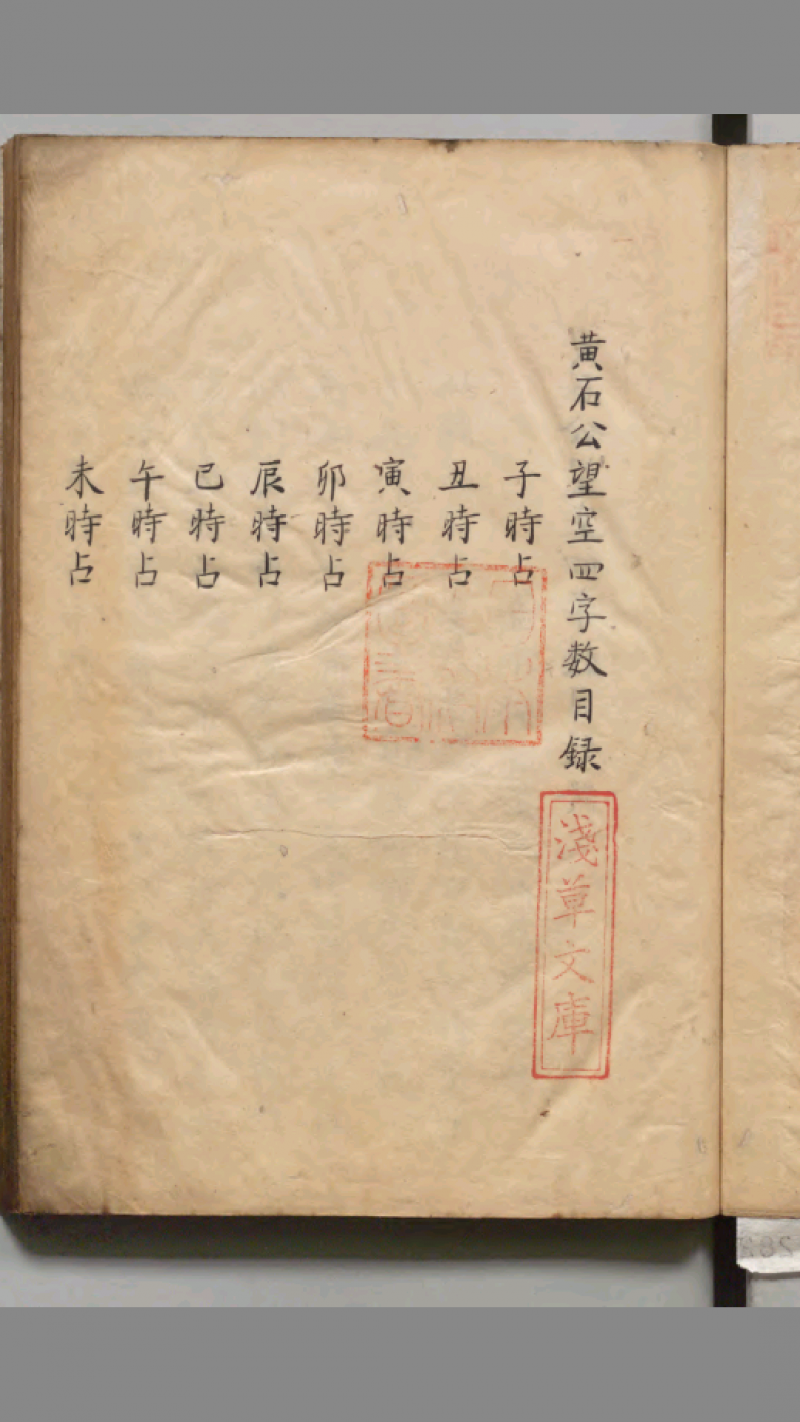 黄石公望空四字数目録
子時占
丑時占
寅時占
卯時占
辰時占
巳時占
午時占
未時占
淺草文庫